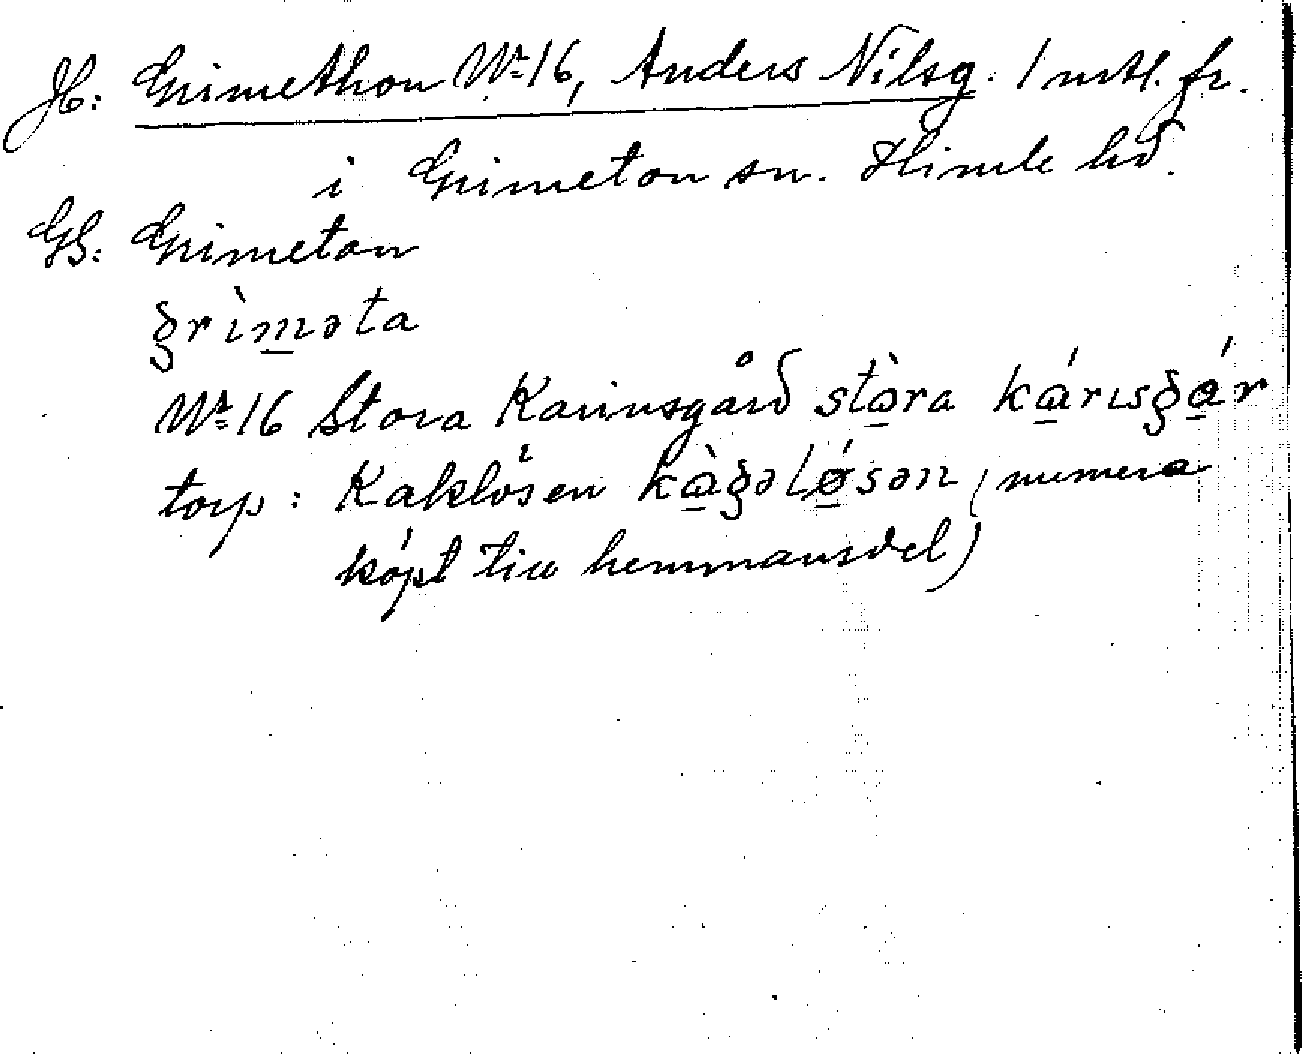 H: Grimethon Nr 16, Anders Nilsg. 1 mtl. fr.
i Grimeton sn. Himle hd.
GS: Grimeton
grìməta
Nr 16 Stora Karinsgård stòra kárısgár
torp: Kaklösen kàgəlǿsən (numera
köpt till hemmansdel)